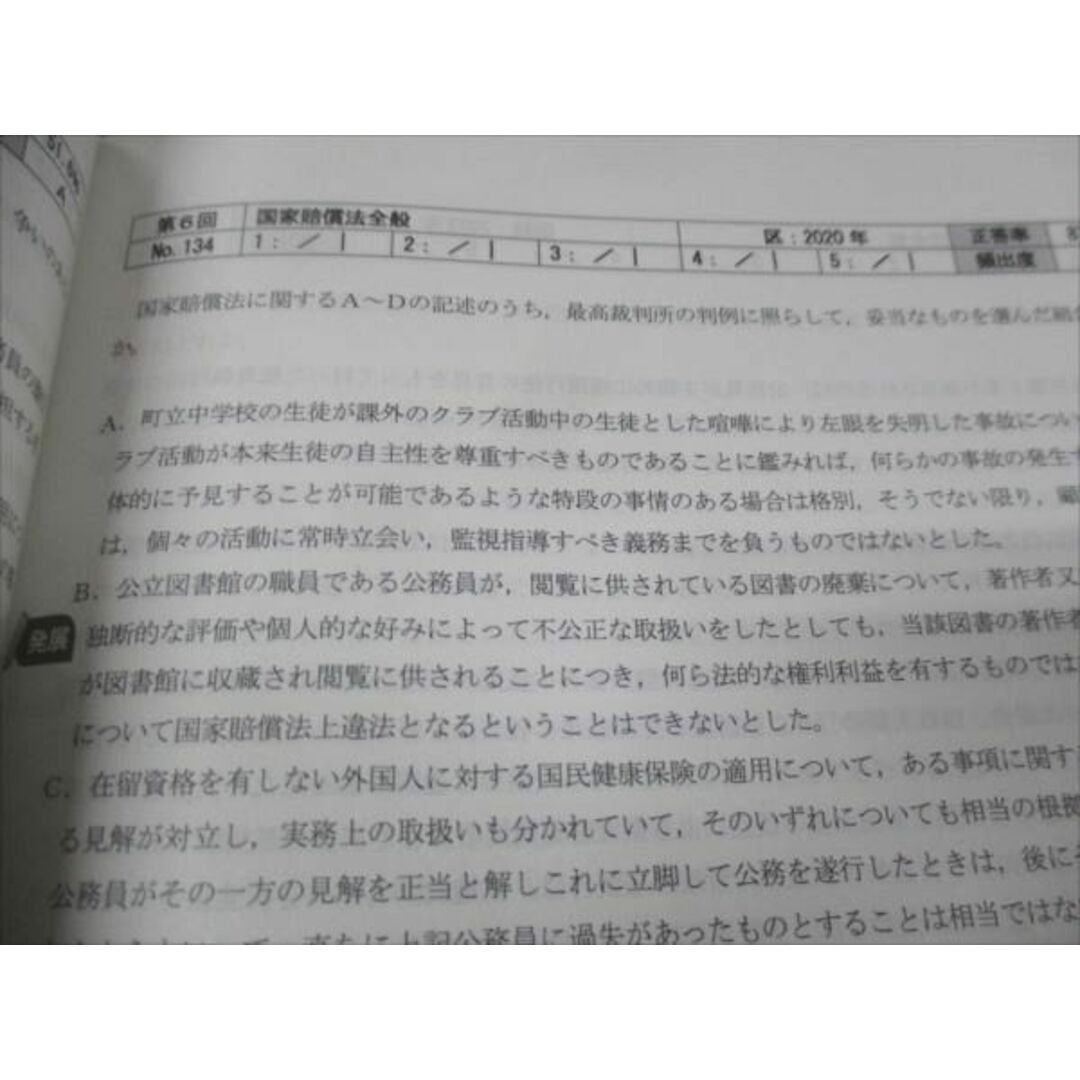 第6回 国家賠償法全般 区：2020年 正答率
No. 134 1： ／ | 2： ／ | 3： ／ | 4： ／ | 5： ／ | 頻出度
国家賠償法に関するA～Dの記述のうち，最高裁判所の判例に照らして，妥当なものを選んだ組
か。
A．町立中学校の生徒が課外のクラブ活動中の生徒とした喧嘩により左眼を失明した事故につい
ラブ活動が本来生徒の自主性を尊重すべきものであることに鑑みれば，何らかの事故の発生す
体的に予見することが可能であるような特段の事情のある場合は格別，そうでない限り，顧
は，個々の活動に常時立会い，監視指導すべき義務までを負うものではないとした。
B．公立図書館の職員である公務員が，閲覧に供されている図書の廃棄について，著作者又
発展 独断的な評価や個人的な好みによって不公正な取扱いをしたとしても，当該図書の著作者
が図書館に収蔵され閲覧に供されることにつき，何ら法的な権利利益を有するものでは
について国家賠償法上違法となるということはできないとした。
C．在留資格を有しない外国人に対する国民健康保険の適用について，ある事項に関す
る見解が対立し，実務上の取扱いも分かれていて，そのいずれについても相当の根拠
公務員がその一方の見解を正当と解しこれに立脚して公務を遂行したときは，後にそ
直ちに上記公務員に過失があったものとすることは相当ではな